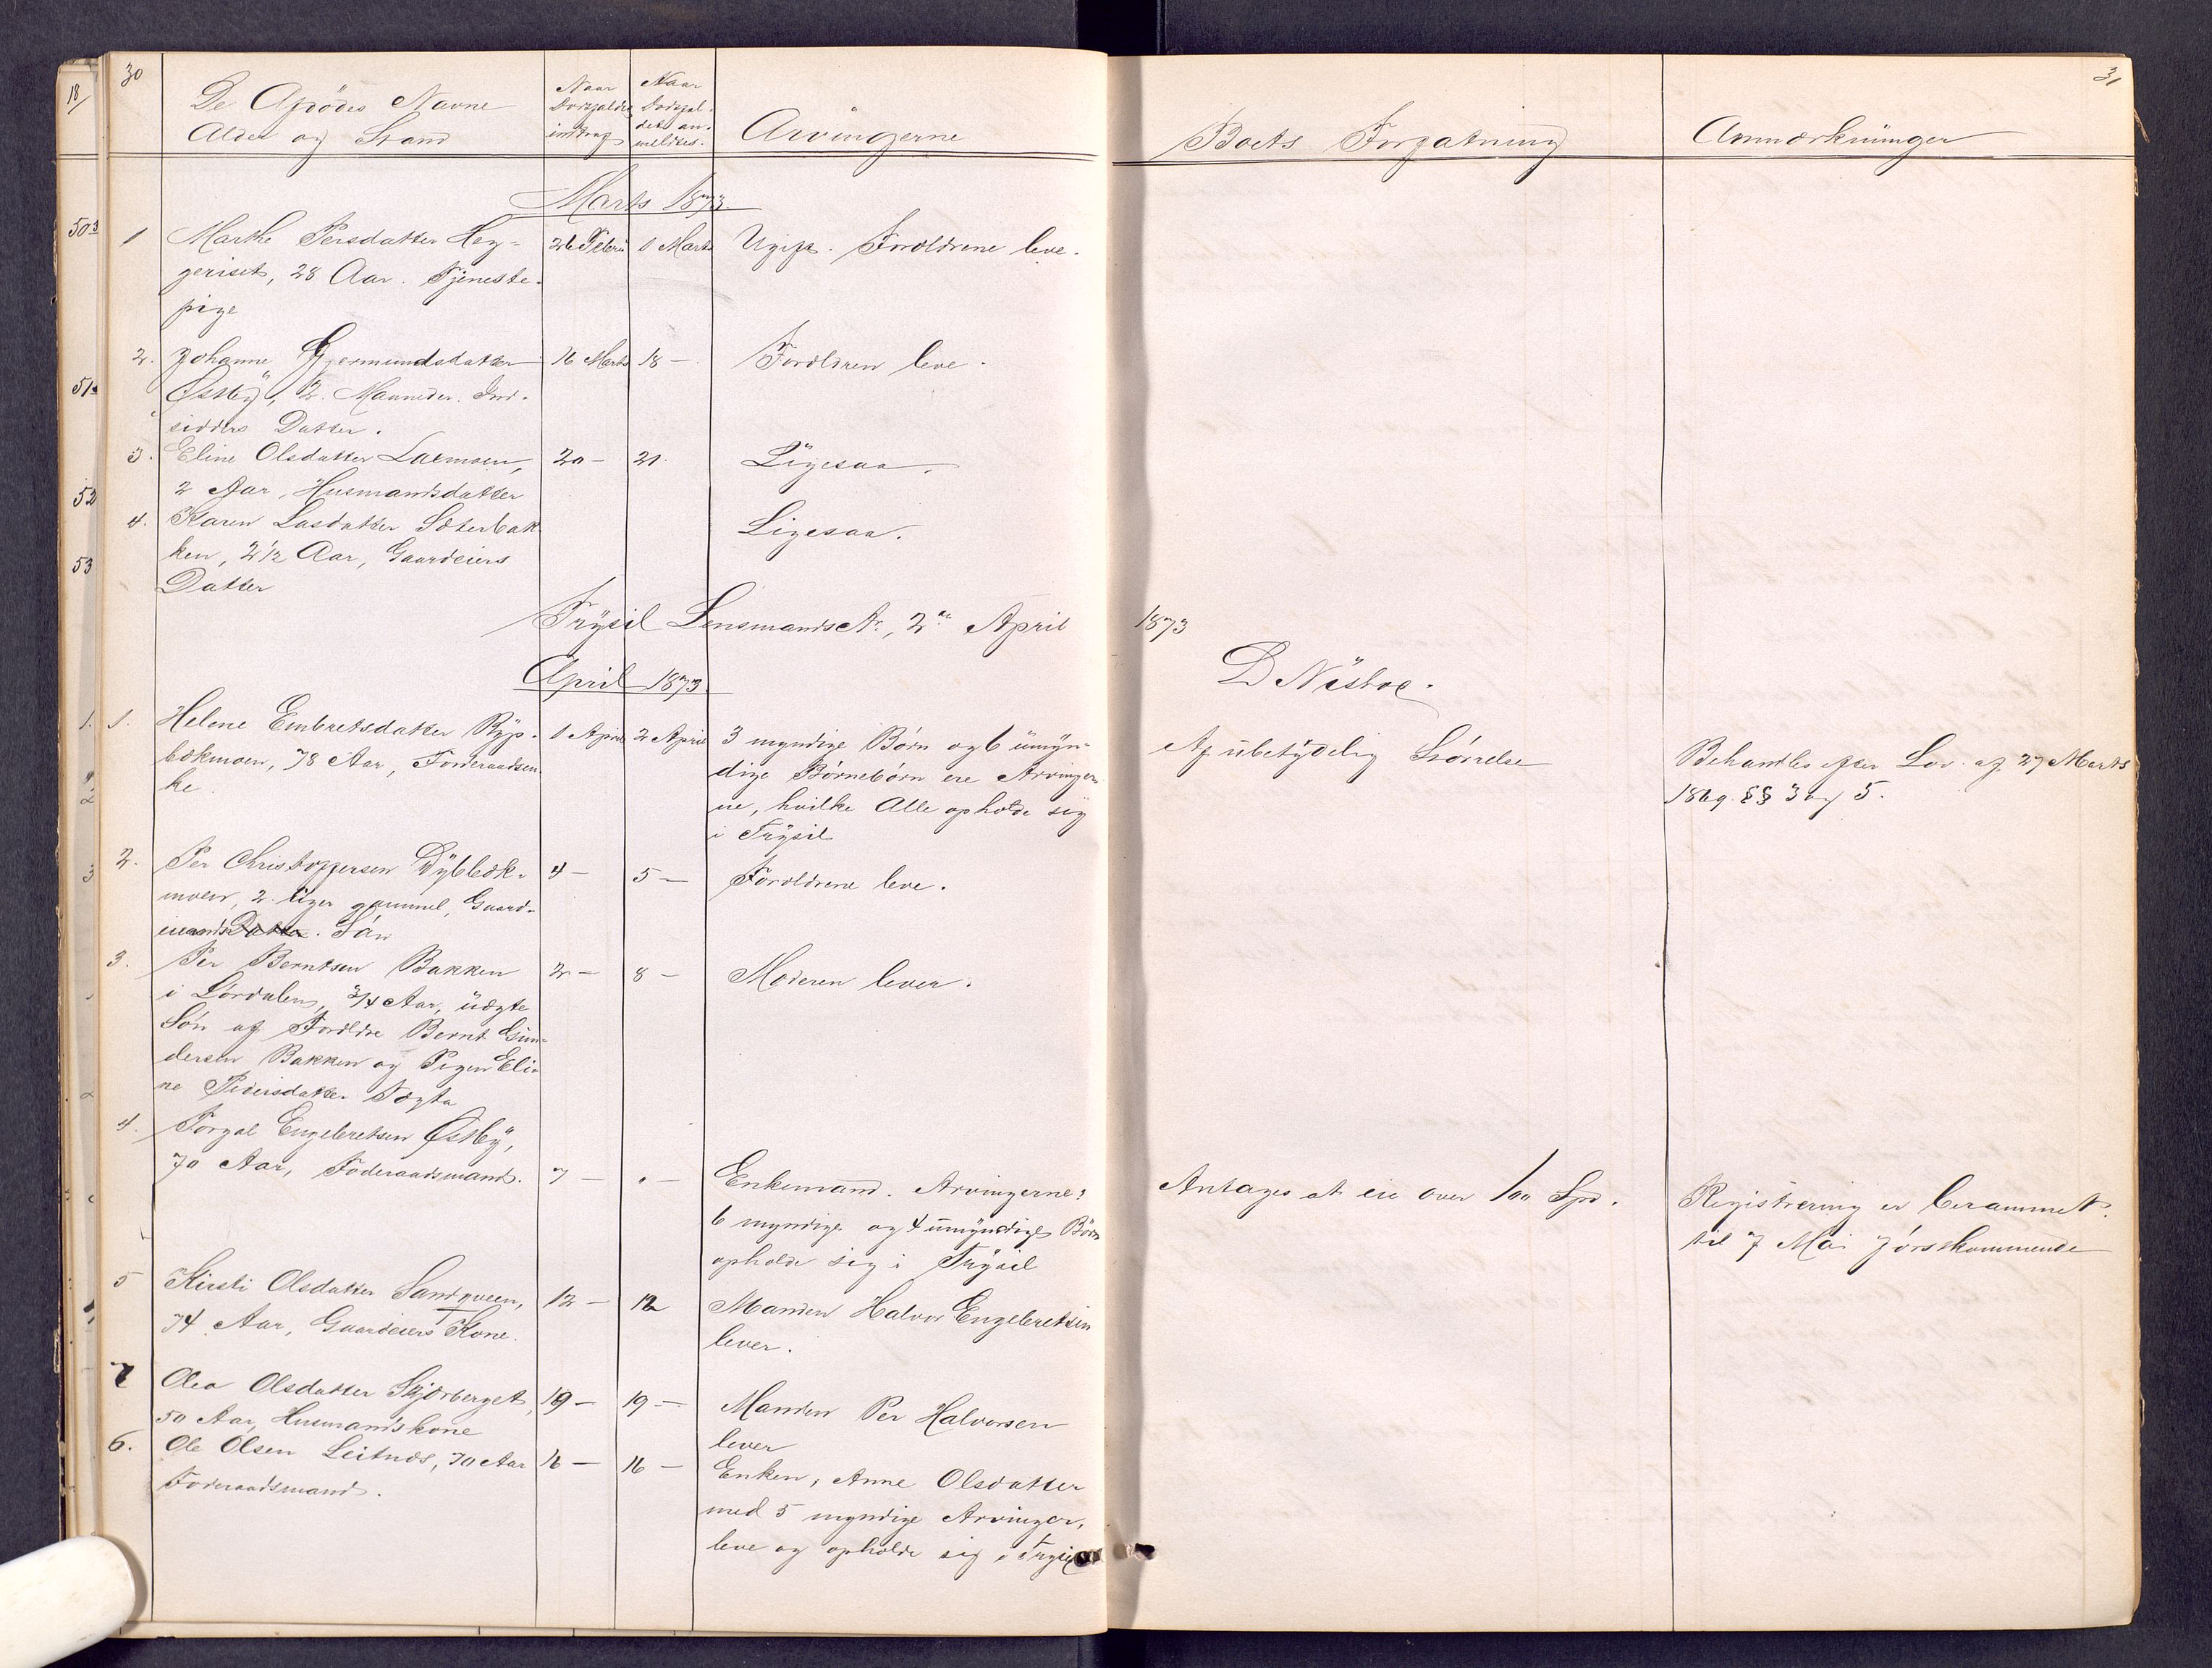 30
De Afdødes Navne
Alder og Stand
Naar
Dødsfaldet
indtraf
Naar
Dødsfal-
det an-
meldtes.
Arvingerne
Boets Forfatning
Anmærkninger
31
Marts 1873.
1 Marthe Persdatter Heg- 26 Febru 1 Marts Ugift. Forældrene leve.
geriset, 28 Aar. Tjeneste-
pige
2. Johanne Gjermundsdatter 16 Marts 18 – Forældren leve.
Østby, 2 Maaneder. Ind-
sidders Datter.
3. Eline Olsdatter Laemoen, 20 – 21. Ligesaa.
2 Aar, Husmandsdatter
4. Karen Lasdatter Sæterbak- Ligesaa.
ken, 2 1/2 Aar, Gaardeiers
Datter
Trysil LensmandsAr, 2den April 1873
D Næstoe.
April 1873.
1. Helene Embretsdatter Ryp- 1 April 2 April 3 myndige Børn og 6 umyn- Af ubetydelig Størrelse Behandles efter Lov af 27 Marts
bækmoen, 78 Aar, Føderaadsen- dige Børnebørn ere Arvinger- 1869 §§ 3 og 5.
ke. ne, hvilke Alle opholde sig
i Trysil
2. Per Christoffersen Dybbæk- 4 – 5 – Forældrene leve.
moen, 2 Uger gammel, Gaard-
mands Datter. Søn
3. Per Berntsen Bakken 2 – 8 – Moderen lever.
i Lørdalen, 3/4 Aar, uægte
Søn af Forældre Bernt Gun-
dersen Bakken og Pigen Eli-
ne Pedersdatter Nægta
4. Torgal Engebretsen Østby,
70 Aar, Føderaadsmand. 7 – " – Enkemand. Arvingerne: Antages at eie over 100 Spd. Registrering er berammet
6 myndige og 4 umyndige Børn til 7 Mai førstkommende
opholde sig i Trysil
5 Kirsti Olsdatter Sandqveen, 12 – 12 Manden Halvor Engebretsen
74 Aar, Gaardeiers Kone. lever.
7 Olea Olsdatter Skjærberget, 19 – 19 – Manden Per Halvorsen
50 Aar, Husmandskone lever
6. Ole Olsen Leitnæs, 70 Aar 16 – 16 – Enken, Anne Olsdatter
Føderaadsmand. med 5 myndige Arvinger,
leve og opholde sig i Trysil